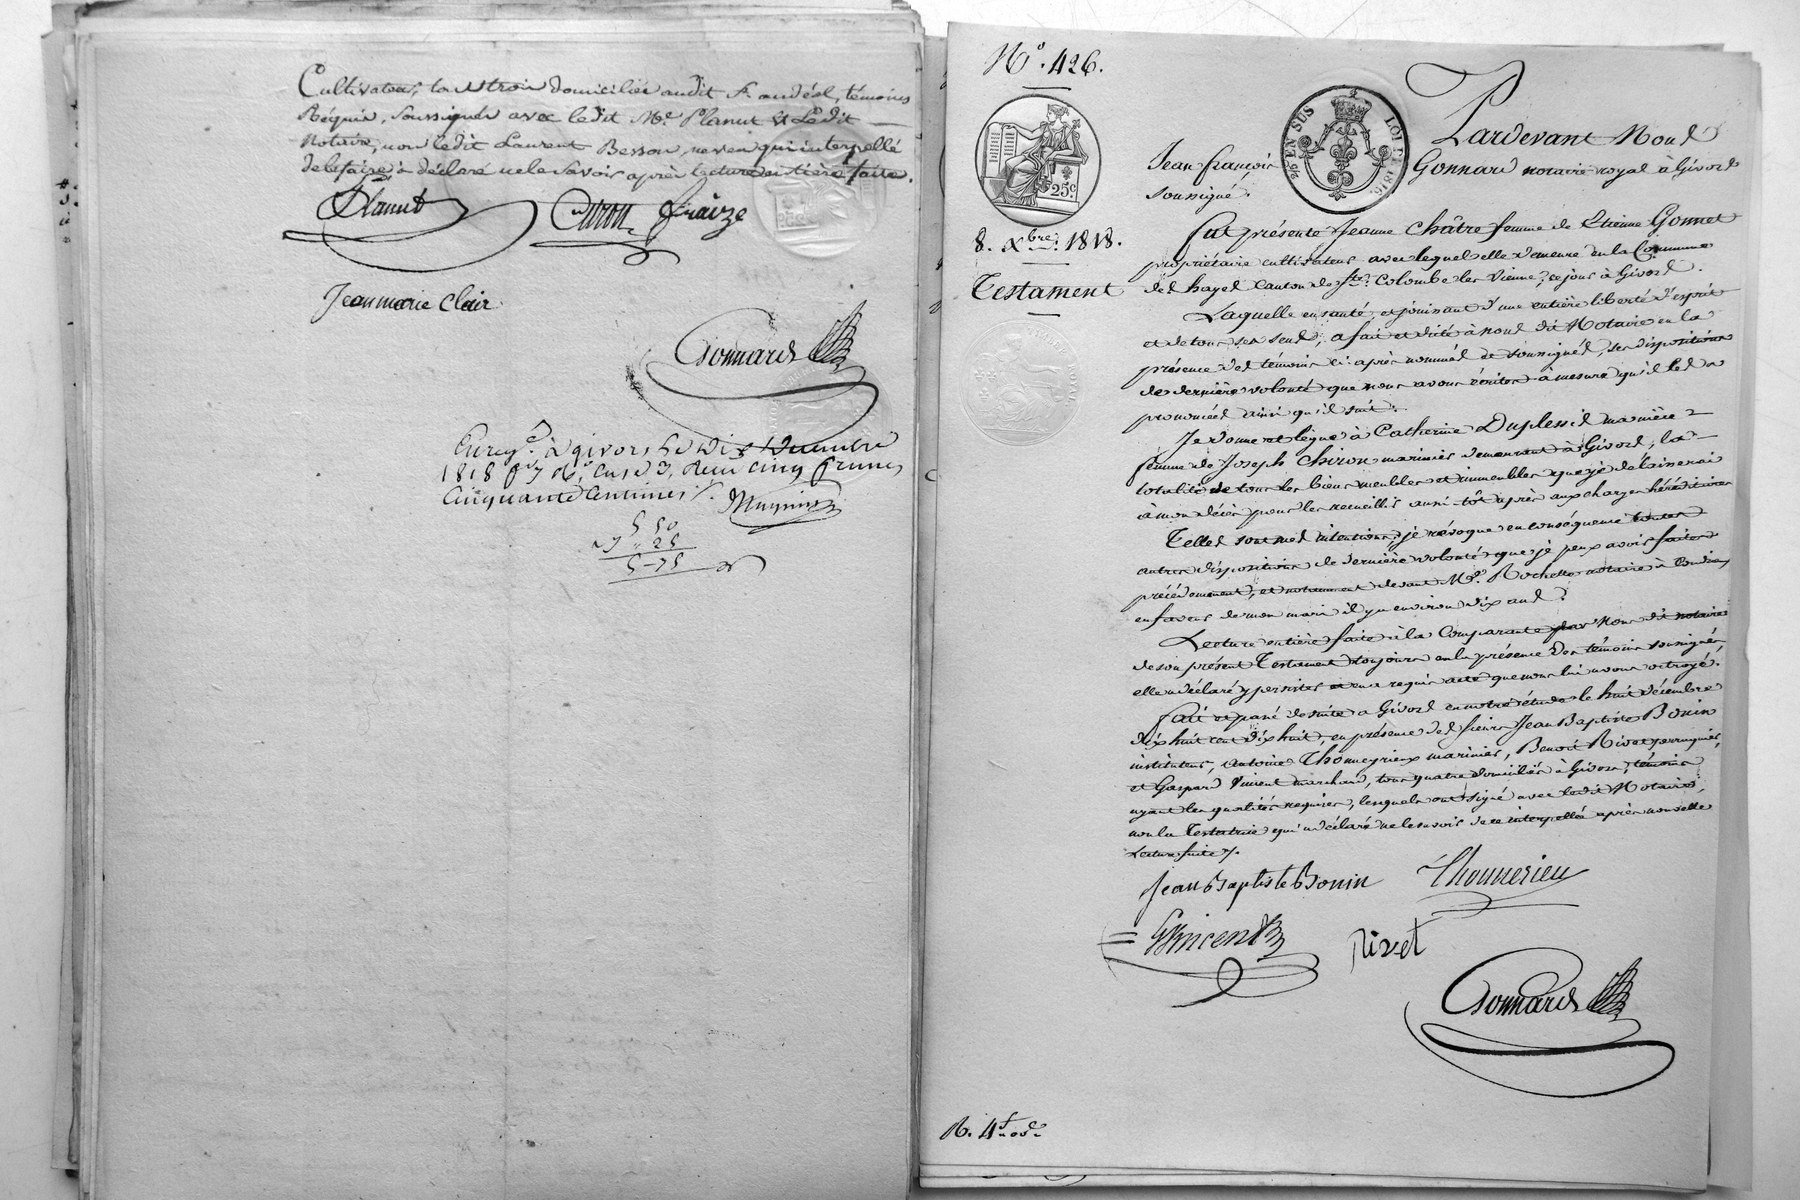 Cultivateurs, tous trois domiciliés audit St. andéol, témoins
Réquis, Soussignés avec ledit Me. Planut & Ledit
Notaire, non ledit Laurent Besson, qui interpellé
de le faire a déclaré ne le Savoir après lecture entière faite.
Planut Caron fraize
Jean marie Clair
Gonnard
Enregé. à givors le dix Décembre
1818 deux cinq francs
Cinquante Centimes
5 50
25
5-75
No. 426.
25c
2/10 EN SUS LOI DE 1816.
8. Xbre. 1818.
Testament
Pardevant Nous
Jean françois Gonnard notaire royal à Givors
soussigné.
fut présente Jeanne Châtre femme de Etienne Gonnet
propriétaire cultivateur avec lequel elle demeure en la Commune
des hayes canton de Ste. Colombe les Vienne, ce jour à Givors.
Laquelle en santé, et jouissant d'une entière liberté d'esprit
et de tous ses sens, a fait et dicté à nous dit Notaire en la
présence des témoins ci-après nommés & soussignés, ses dispositions
de dernière volonté que nous avons écrites à mesure qu'il les a
prononcées ainsi qu'il suit.
Je donne et lègue à Catherine Duplessis ma nièce
femme de Joseph Chiron marinier demeurant à Givors, la
totalité de tous les biens meubles et immeubles que je délaisserai
à mon décès pour les recueillir aussi-tôt après aux charges héréditaires
Telles sont mes intentions; je révoque en conséquence toutes
autres dispositions de dernière volonté que je peux avoir faites
précédemment, et notamment devant Me. Rochette notaire à Condrieu
en faveur de mon mari il y a environ dix ans.
Lecture entière faite à la Comparante par Nous dit notaire
de son présent Testament toujours en la présence des témoins soussignés,
elle a déclaré y persister et en a requis acte que nous lui avons octroyé.
fait et passé de suite à Givors en notre étude le huit décembre
dix huit cent dix huit, en présence des sieurs Jean Baptiste Bonin
instituteur, Antoine Thonnerieux marinier, Benoit Rivet perruquier,
et Gaspard Vincent marchand, tous quatre domiciliés à Givors, témoins
ayant les qualités requises, lesquels ont signé avec ledit Notaire,
non la Testatrice qui a déclaré ne le savoir de ce interpellée après nouvelle
Lecture faite.
Jean Baptiste Bonin Thonnerieu
G Vincent Rivet
Gonnard
R. 4